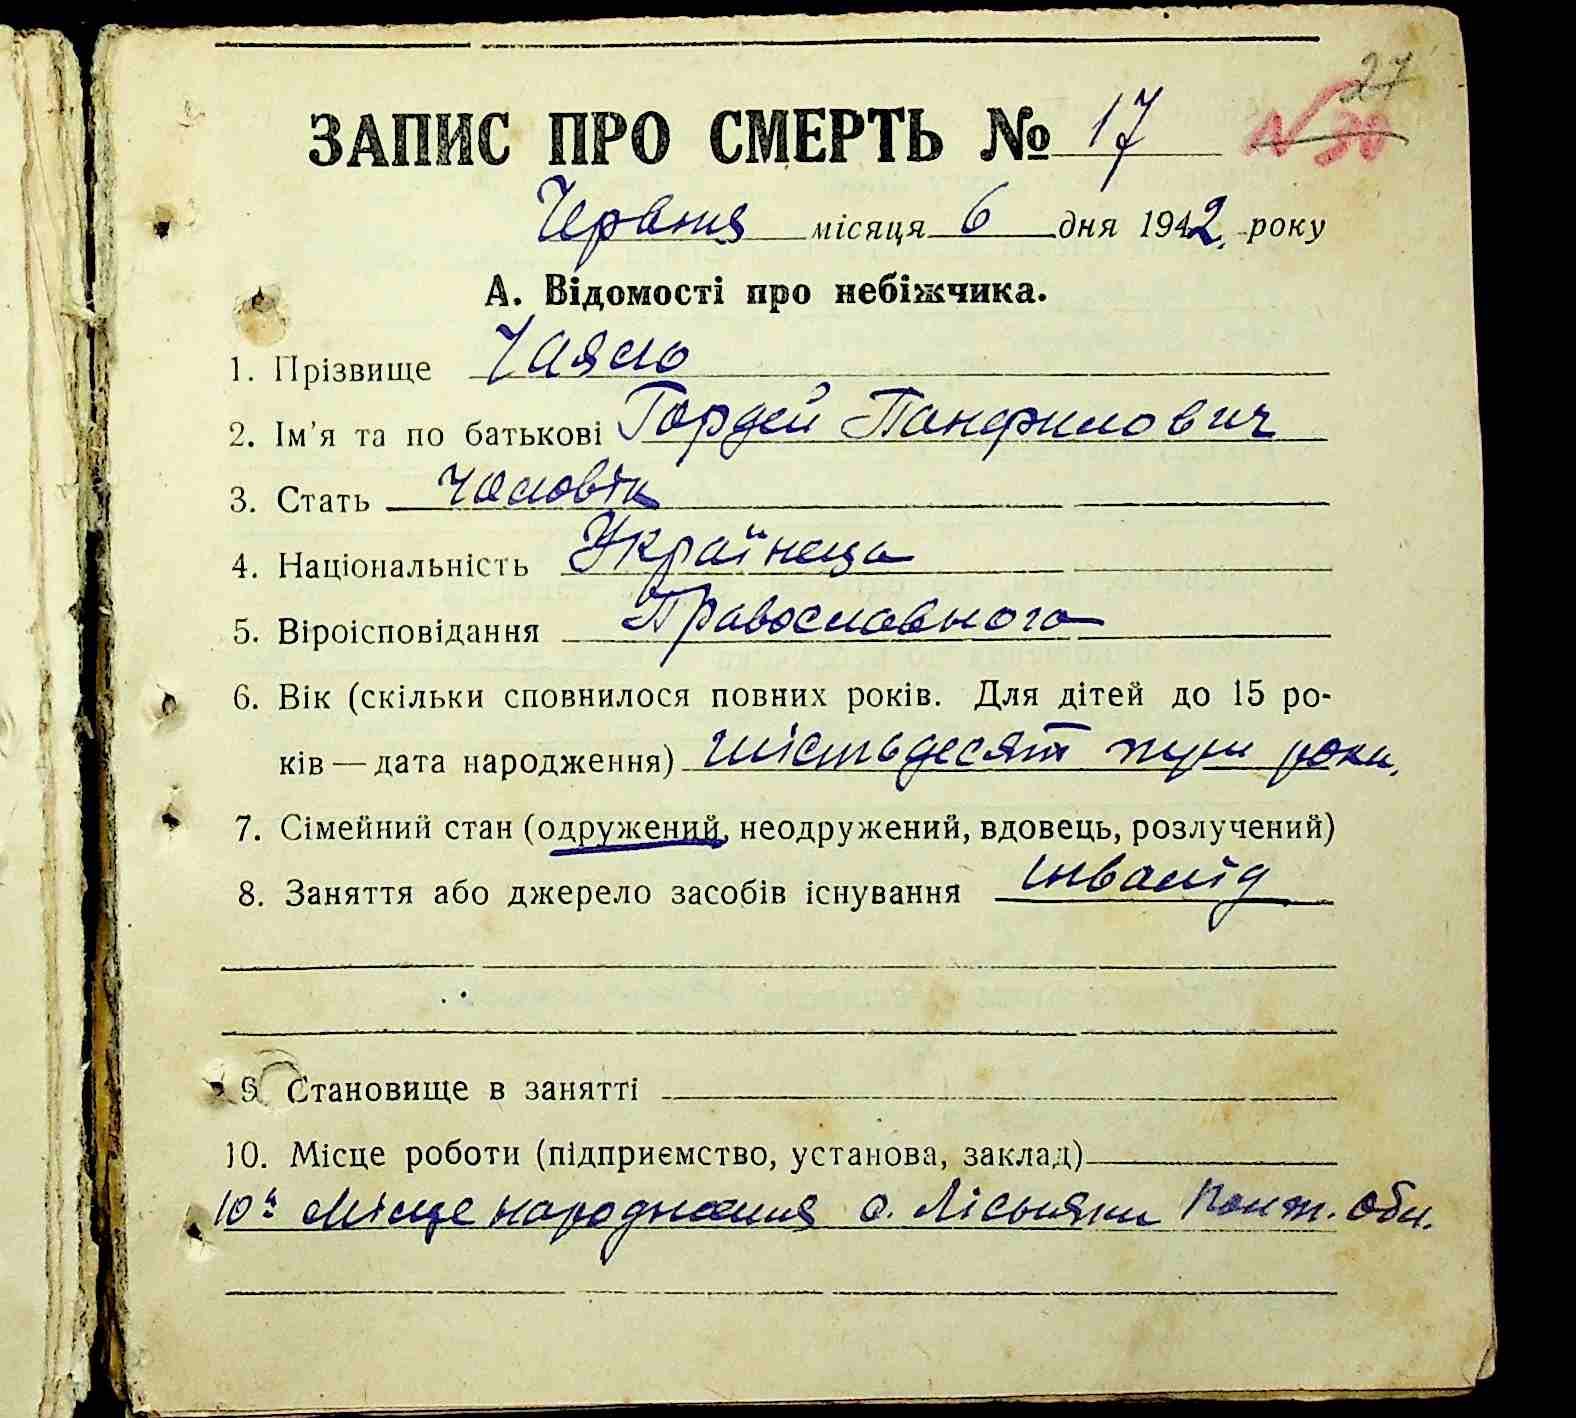 27
N 30
ЗАПИС ПРО СМЕРТЬ № 17
Червня місяця 6 дня 1942 року
А. Відомості про небіжчика.
1. Прізвище Чаяло
2. Ім'я та по батькові Гордей Панфилович
3. Стать чоловік
4. Національність Українець
5. Віроісповідання Православного
6. Вік (скільки сповнилося повних років. Для дітей до 15 ро-
ків — дата народження) шістьдесят три роки.
7. Сімейний стан (одружений, неодружений, вдовець, розлучений)
8. Заняття або джерело засобів існування інвалід
9. Становище в занятті
10. Місце роботи (підприємство, установа, заклад)
10а Місце народження с. Лісьняки Полт. обл.